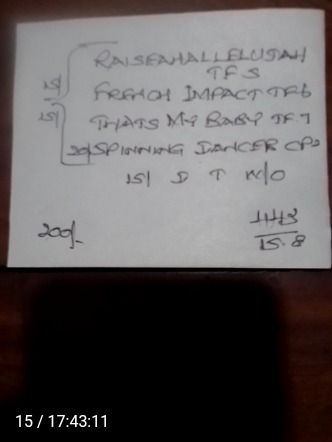 RAISEAHALLELUJAH
TFS
15/ FRENCH IMPACT TF6
15/ THATS MY BABY TF7
20/ SPINNING DANCER CP2
15/ D T W/O
200/-
15.8
15 / 17:43:11